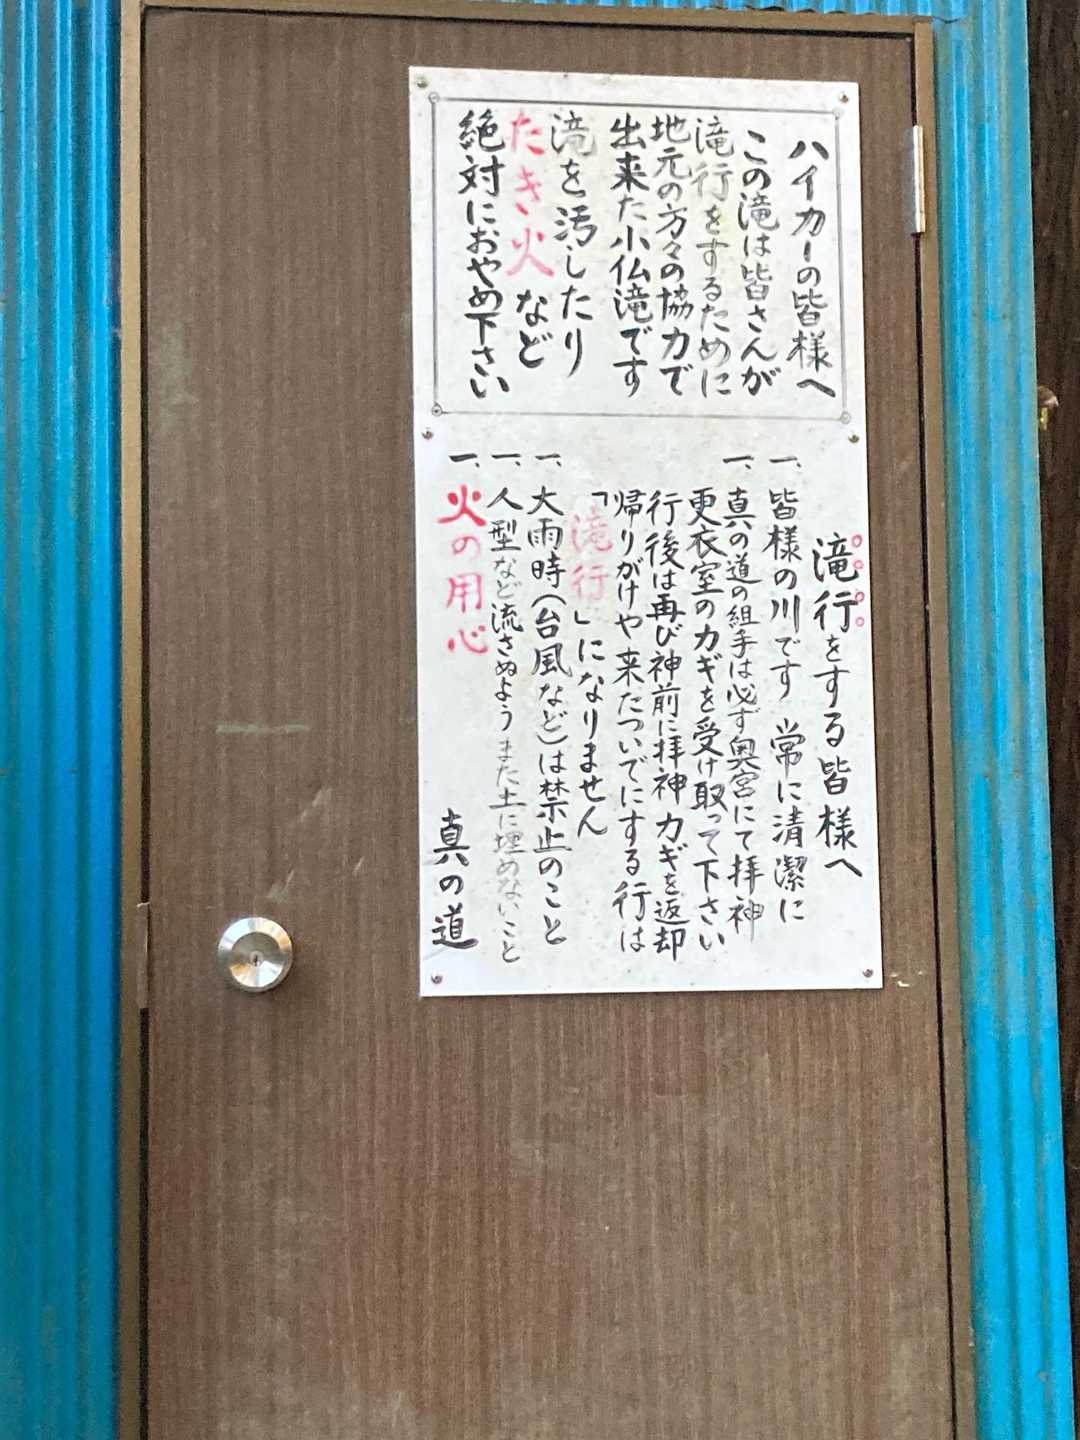 ハイカーの皆様へ
この滝は皆さんが
滝行をするために
地元の方々の協力で
出来た小仏滝です
滝を汚したり
たき火など
絶対におやめ下さい
滝行をする皆様へ
一、皆様の川です 常に清潔に
一、真の道の組手は必ず奥宮にて拝神
更衣室のカギを受け取って下さい
行後は再び神前に拝神 カギを返却
帰りがけや来たついでにする行は
「滝行」になりません
一、大雨時(台風など)は禁止のこと
一、人型など流さぬよう また土に埋めないこと
一、火の用心
真の道